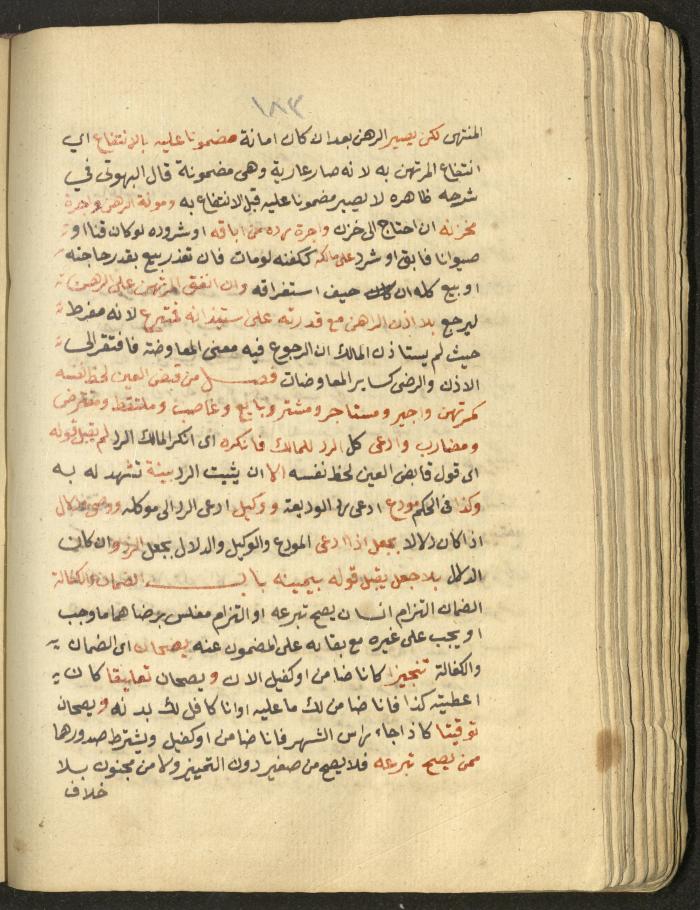 ١٨٣
المنتهى لكن يصير الرهن بعد ان كان امانة مضمونا عليه بالانتفاع اي
انتفاع المرتهن به لانه صار عارية وهي مضمونة قال البهوتي في
شرحه ظاهره لا يصير مضمونا عليه قبل الانتفاع به ومونة الرهن واجرة
مخزنه ان احتاج الى خزن واجرة رده من اباقه او شروده لو كان قنا او
حيوانا فابق او شرد على مالكه ككفنه لو مات فان تعذر بيع بقدر حاجته
او بيع كله ان خيف استغراقه وان انفق المرتهن على الرهن
ليرجع بلا اذن الراهن مع قدرته على استيذانه فمتبرع لانه مفرط
حيث لم يستاذن المالك ان الرجوع فيه معنى المعاوضة فافتقر الى
الاذن والرضى كساير المعاوضات فصل من قبض العين لحظ نفسه
كمرتهن واجير ومستاجر ومشتر وبايع وغاصب وملتقط ومقترض
ومضارب وادعى كل الرد للمالك فانكره اى انكر المالك الرد لم يقبل قوله
اى قول قابض العين لحظ نفسه الا ان يثبت الرد ببينة تشهد له به
وكذا فى الحكم مودع ادعى رد الوديعة ووكيل ادعى الرد الى موكله ووصي ودلال
اذا كان دلالا بجعل اذا ادعى المودع والوكيل والدلال بجعل الرد وان كان
الدلال بلا جعل يقبل قوله بيمينه باب الضمان والكفالة
الضمان التزام انسان يصح تبرعه او التزام مفلس برضاهما ما وجب
او يجب على غيره مع بقائه على المضمون عنه يصحان اى الضمان
والكفالة تنجيزا كانا ضامن او كفيل الان ويصحان تعليقا كان
اعطيته كذا فانا ضامن لك ما عليه او انا كافل لك بدنه ويصحان
توقيتا كاذا جاء راس الشهر فانا ضامن او كفيل ويشترط صدورها
ممن يصح تبرعه فلا يصح من صغير دون التمييز ولا من مجنون بلا
خلاف